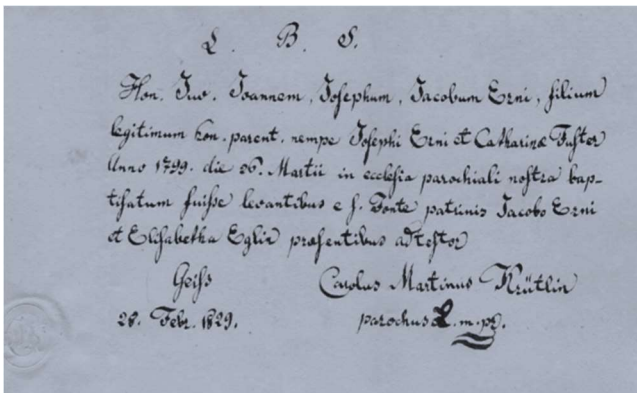 L. B. S.
Hon. Juv. Joannem, Josephum, Jacobum Erni, filium
legitimum hon. parent. nempe Josephi Erni et Catharinæ Fuster
Anno 1799. die 06. Martii in ecclesia parochiali nostra bap-
tisatum fuisse levantibus e s. Fonte patrinis Jacobo Erni
et Elisabetha Eglin præsentibus adtestor
Geiss Carolus Martinus Krütlin
28. Febr. 1829. parochus L. m. pr.